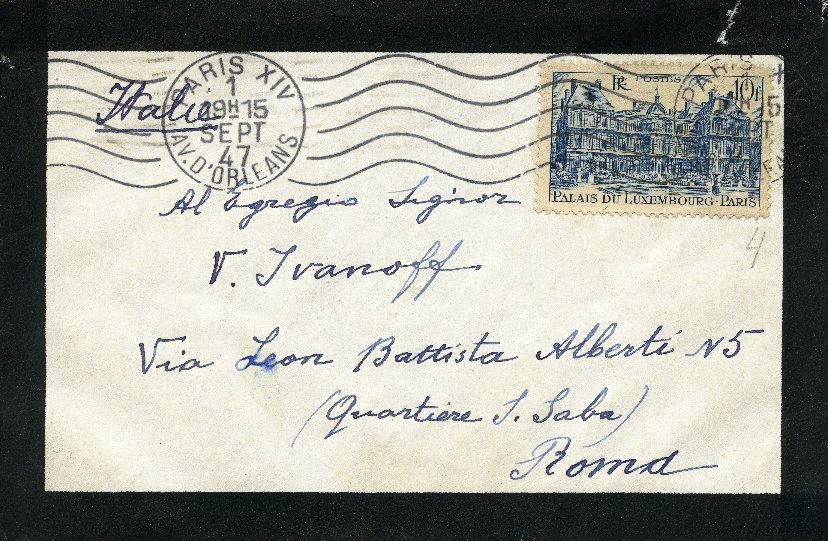 Italie
PARIS XIV
1
19H15
SEPT
47
AV. D'ORLEANS
RF POSTES 10F
PALAIS DU LUXEMBOURG-PARIS
PARIS
Al Egregio Signor
V. Ivanoff
4
Via Leon Battista Alberti N5
(Quartiere S. Saba)
Roma